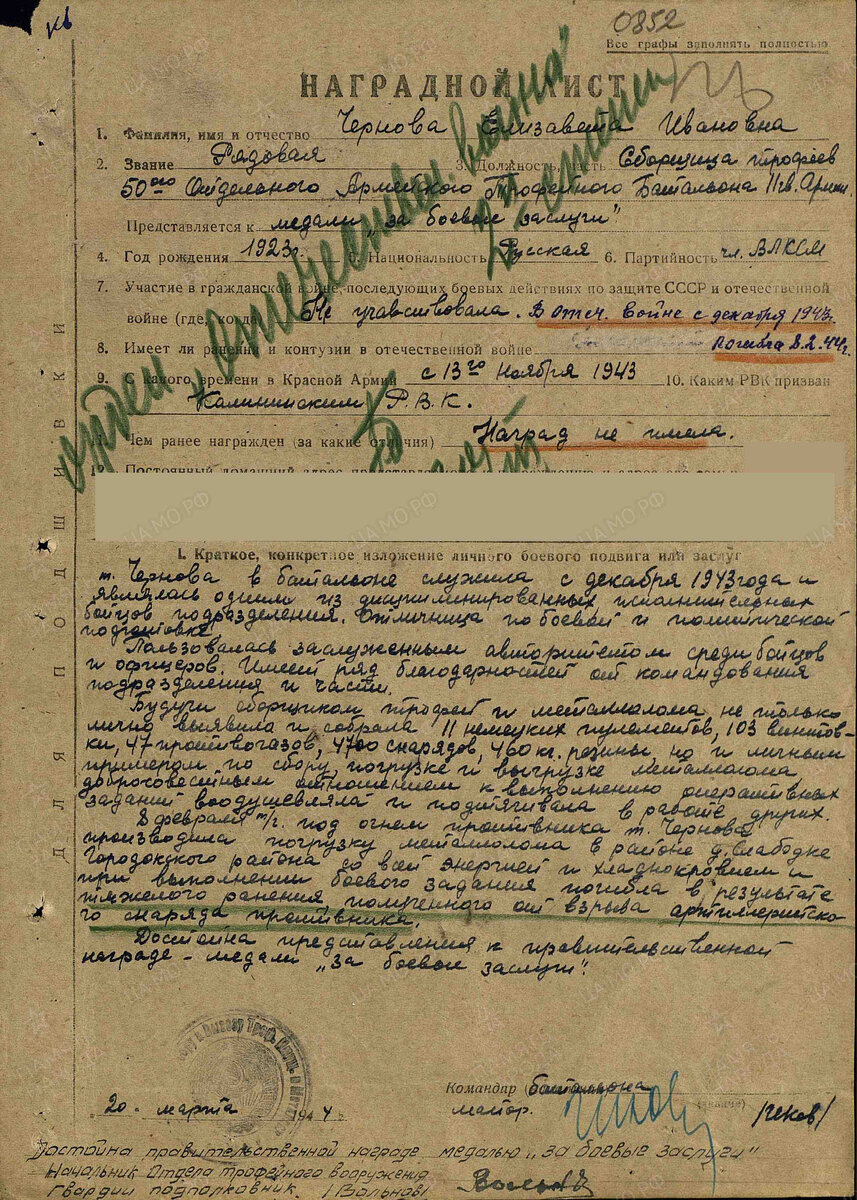 0852
Все графы заполнять полностью
НАГРАДНОЙ ЛИСТ
орден "Отечествен. война"
2й степени
1. Фамилия, имя и отчество Чернова Елизавета Ивановна
2. Звание Рядовая 3. Должность, часть Сборщица трофеев
50ого Отдельного Армейского Трофейного Батальона 11 гв. Армии.
Представляется к медали „за боевые заслуги"
4. Год рождения 1923г. 5. Национальность Русская 6. Партийность чл. ВЛКСМ
7. Участие в гражданской войне, последующих боевых действиях по защите СССР и отечественной
войне (где, когда) Не учавствовала. В отеч. войне с декабря 1943.
8. Имеет ли ранения и контузии в отечественной войне Погибла 8.2.44г.
9. С какого времени в Красной Армии с 13го ноября 1943 10. Каким РВК призван
Калининским Р.В.К.
11. Чем ранее награжден (за какие отличия) Наград не имела.
12. Постоянный домашний адрес
ДЛЯ ПОДШИВКИ
I. Краткое, конкретное изложение личного боевого подвига или заслуг
т. Чернова в батальоне служила с декабря 1943 года и
являлась одним из дисциплинированных исполнительных
бойцов подразделения. Отличница по боевой и политической
подготовке.
Пользовалась заслуженным авторитетом среди бойцов
и офицеров. Имеет ряд благодарностей от командования
подразделения и части.
Будучи сборщиком трофей и металлолома не только
лично выявила и собрала 11 немецких пулеметов, 103 винтов-
ки, 47 противогазов, 4700 снарядов, 460 кг. резины но и личным
примером по сбору, погрузке и выгрузке металлолома,
добросовестным отношением к выполнению оперативных
заданий воодушевляла и подтягивала в работе других.
8 февраля т/г. под огнем противника т. Чернова
производила погрузку металлолома в районе д. Слабодке
Городокдкого района со всей энергией и хладнокровием и
при выполнении боевого задания погибла в результате
тяжелого ранения, полученного от взрыва артиллерийско-
го снаряда противника.
Достойна представления к правительственной
награде – медали „за боевые заслуги".
Командир батальона
20. марта 1944 г. майор. /Чехов/
Достойна правительственной награде медалью „за боевые заслуги"
Начальник Отдела трофейного вооружения
Гвардии подполковник. /Вольнов/
ЦАМО.РФ